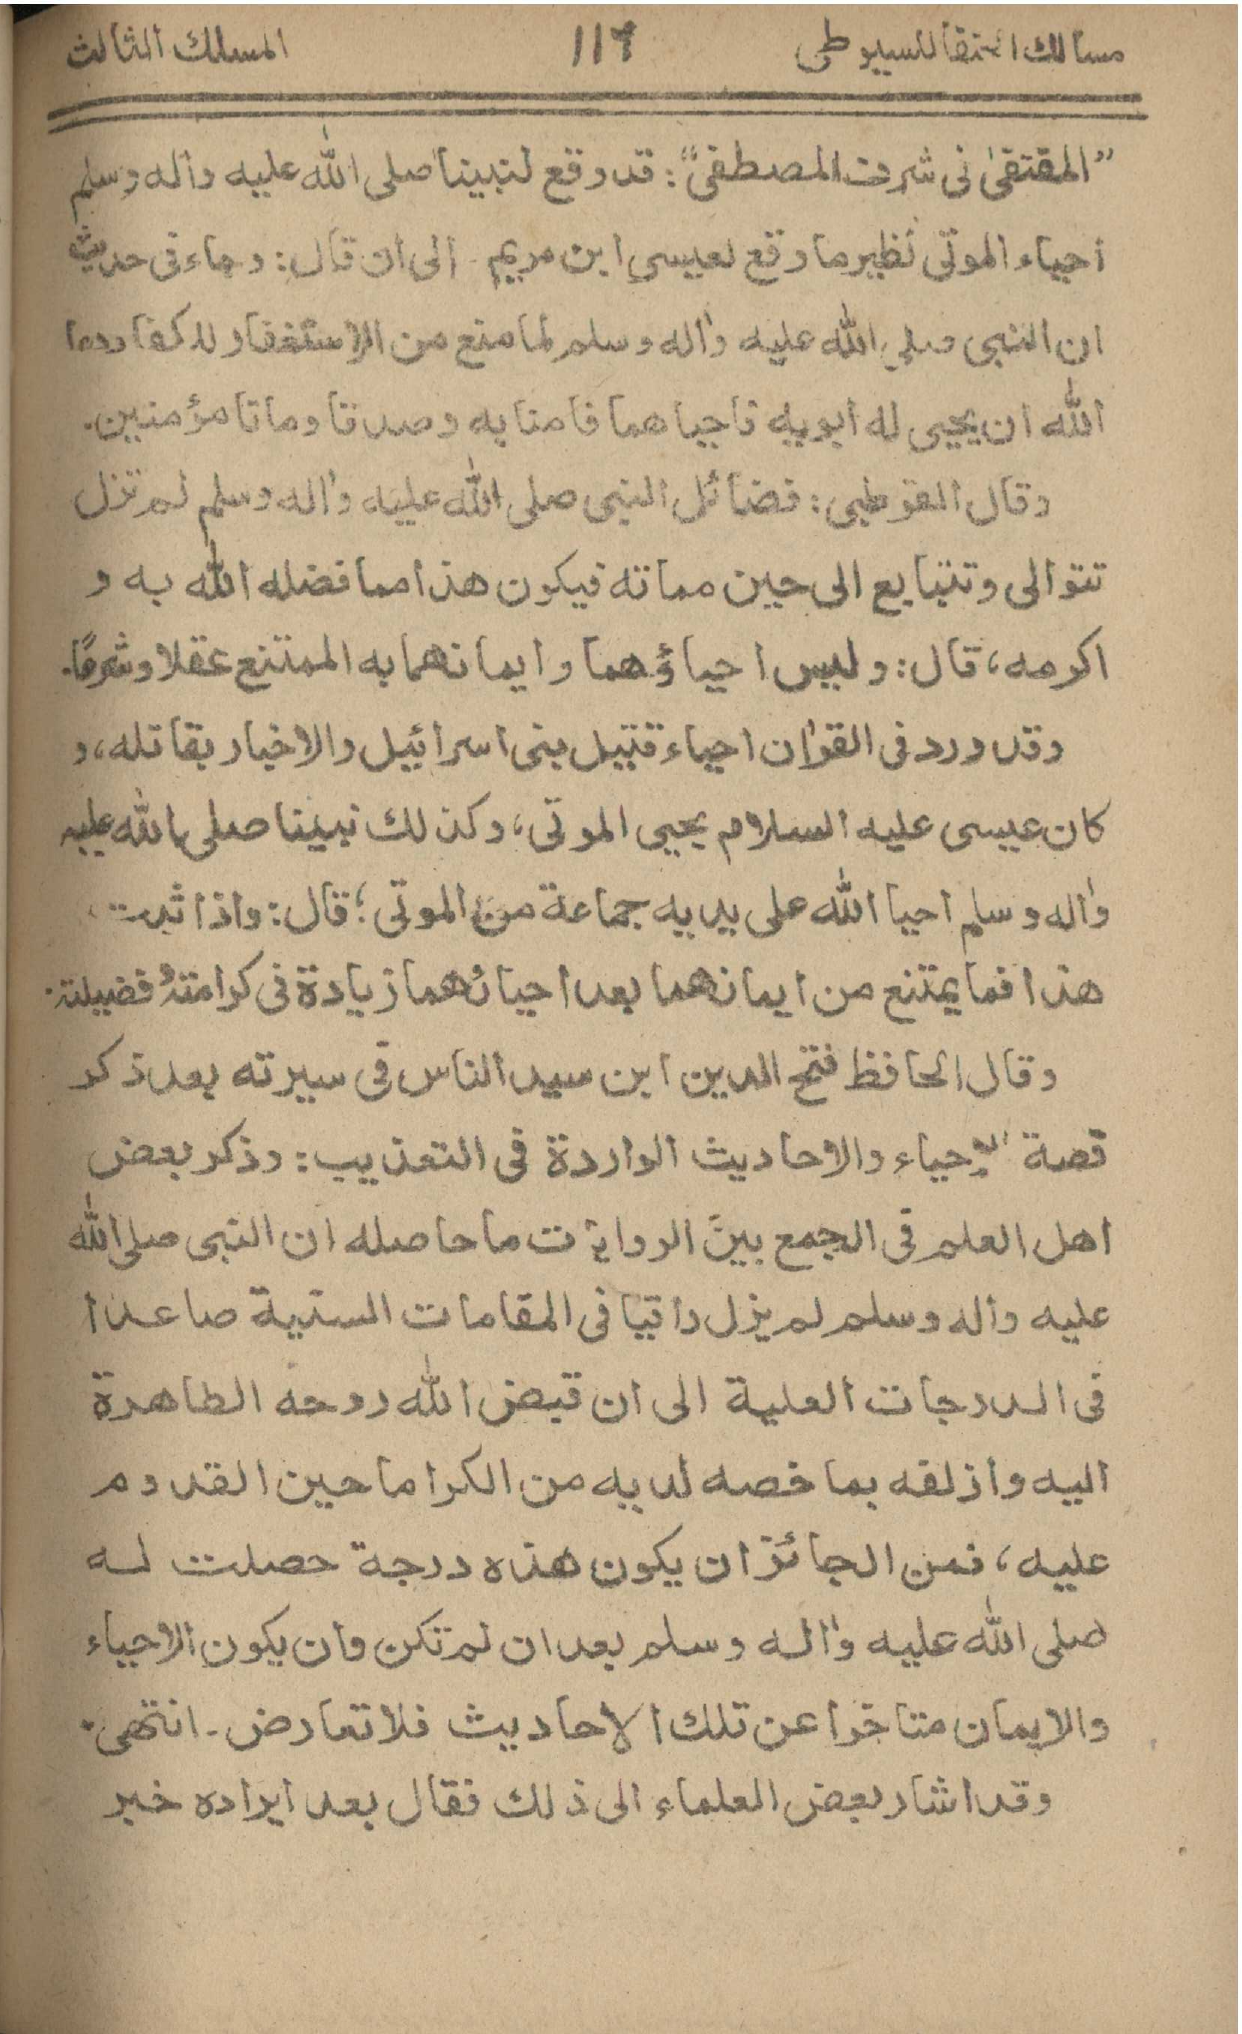 مسالك الحنفا للسيوطى ١١٦ المسلك الثالث
”المقتفىٰ فى شرف المصطفىٰ“: قد وقع لنبينا صلى الله عليه واٰله وسلم
احياء الموتى نظير ما وقع لعيسى ابن مريم الى ان قال: وجاء فى حديث
ان النبى صلى الله عليه واٰله وسلم لما منع من الاستغفار للكفار دعا
الله ان يحيى له ابويه فاحياهما فامنا به وصدقا وماتا مؤمنين.
وقال القرطبى: فضائل النبى صلى الله عليه واٰله وسلم لم تزل
تتوالى وتتتابع الى حين مماته فيكون هذا مما فضله الله به و
اكرمه، قال: وليس احياؤهما وايمانهما به الممتنع عقلا وشرعًا.
وقد ورد فى القراٰن احياء قتيل بنى اسرائيل والاخبار بقاتله، و
كان عيسى عليه السلام يحيى الموتى، وكذلك نبينا صلى الله عليه
واٰله وسلم احيا الله على يديه جماعة من الموتى؛ قال: واذا ثبت
هذا فما يمتنع من ايمانهما بعد احيائهما زيادة فى كرامته وفضيلته.
وقال الحافظ فتح الدين ابن سيد الناس فى سيرته بعد ذكر
قصة الاحياء والاحاديث الواردة فى التعذيب: وذكر بعض
اهل العلم فى الجمع بين الروايات ما حاصله ان النبى صلى الله
عليه واٰله وسلم لم يزل راقيا فى المقامات السنية صاعدا
فى الدرجات العلية الى ان قبض الله روحه الطاهرة
اليه وازلفه بما خصه لديه من الكراما حين القدوم
عليه، فمن الجائز ان يكون هذه درجة حصلت له
صلى الله عليه واٰله وسلم بعد ان لم تكن وان يكون الاحياء
والايمان متاخرا عن تلك الاحاديث فلا تعارض ۔ انتهى.
وقد اشار بعض العلماء الى ذلك فقال بعد ايراده خبر